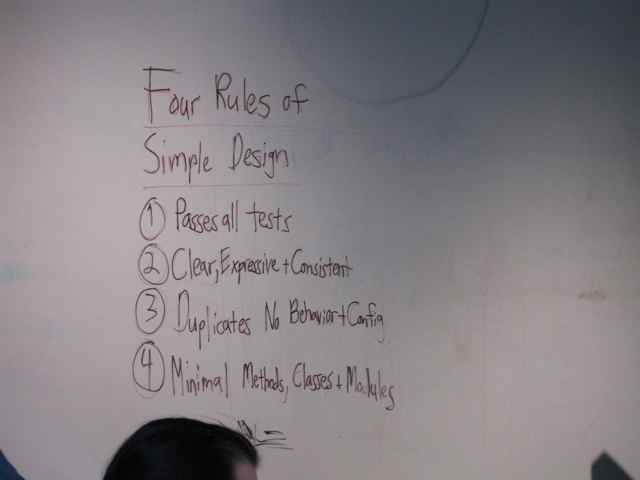 Four Rules of
Simple Design
1 Passes all tests
2 Clear, Expressive + Consistent
3 Duplicates No Behavior + Config
4 Minimal Methods, Classes + Modules